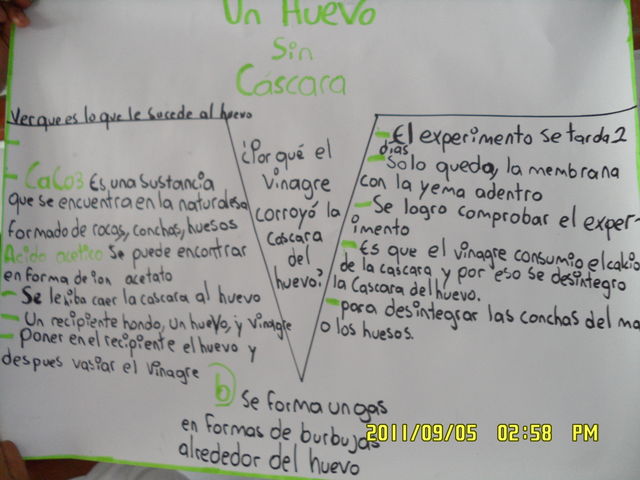 Un Huevo
Sin
Cáscara
Ver que es lo que le sucede al huevo
- CaCo3 Es una sustancia
que se encuentra en la naturalesa
formado de rocas, conchas, huesos
Acido acetico Se puede encontrar
en forma de ion acetato
- Se le hiba caer la cascara al huevo
- Un recipiente hondo, un huevo, y vinagre
- Poner en el recipiente el huevo y
despues vasiar el vinagre
¿Por qué el
vinagre
corroyó la
cascara
del
huevo?
- El experimento se tarda 2
dias
- Solo queda, la membrana
con la yema adentro
- Se logro comprobar el exper-
imento
- Es que el vinagre consumio el calcio
de la cascara y por eso se desintegro
la Cascara del huevo.
- para desintegrar las conchas del ma
o los huesos.
b Se forma un gas
en formas de burbujas
alrededor del huevo
2011/09/05 02:58 PM